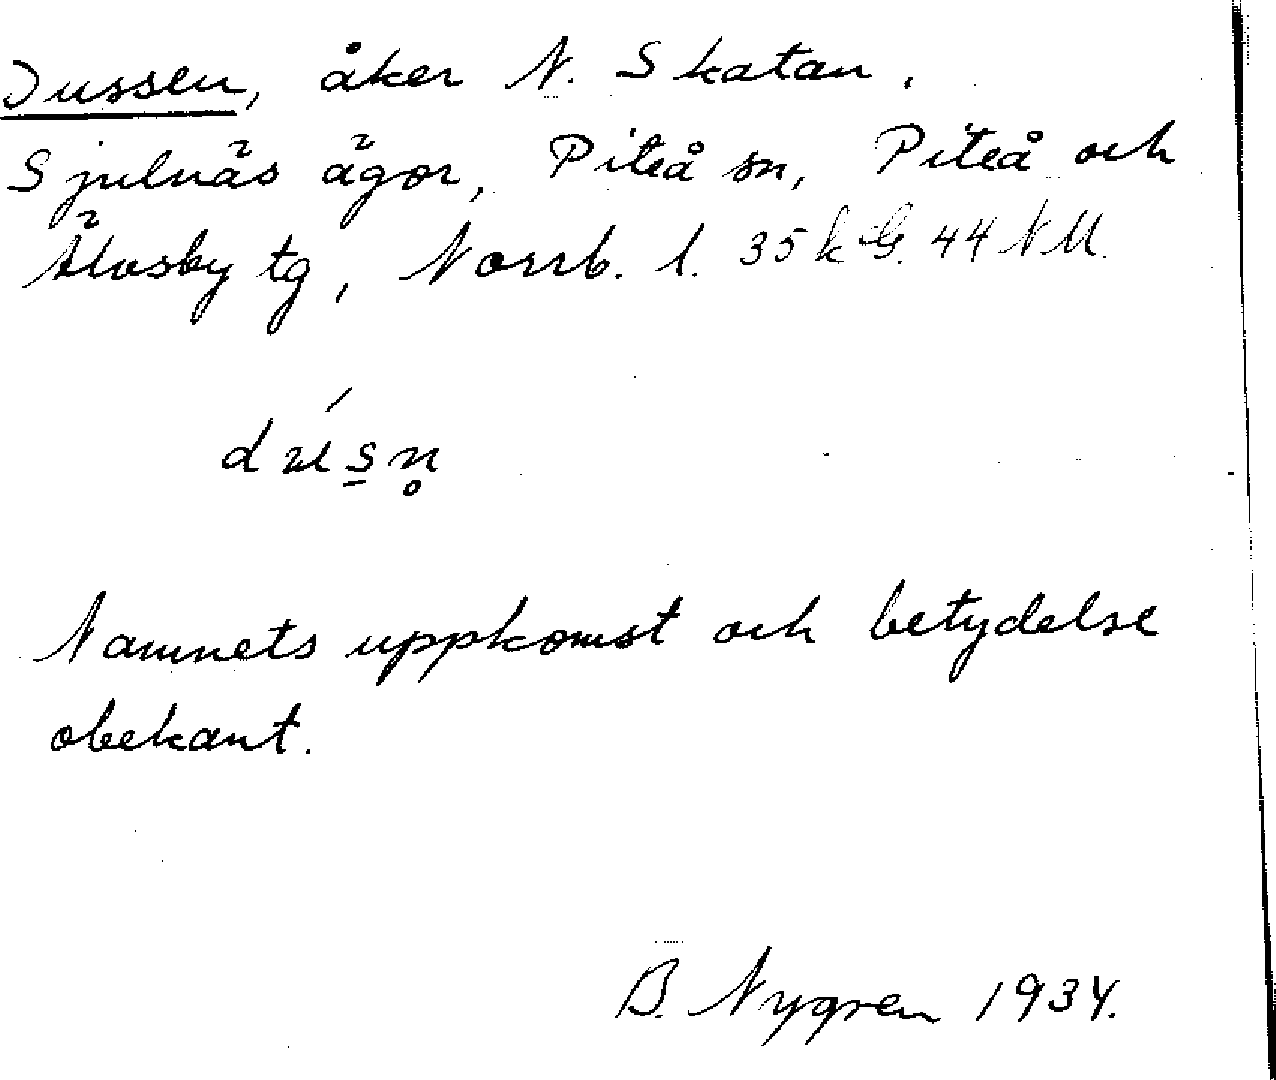 Dussen, åker N. Skatan,
Sjulnäs ägor, Piteå sn, Piteå och
Älvsby tg, Norrb. l. 35 k G. 44 NM.
dús̲n̥
Namnets uppkomst och betydelse
obekant.
B. Nygren 1934.